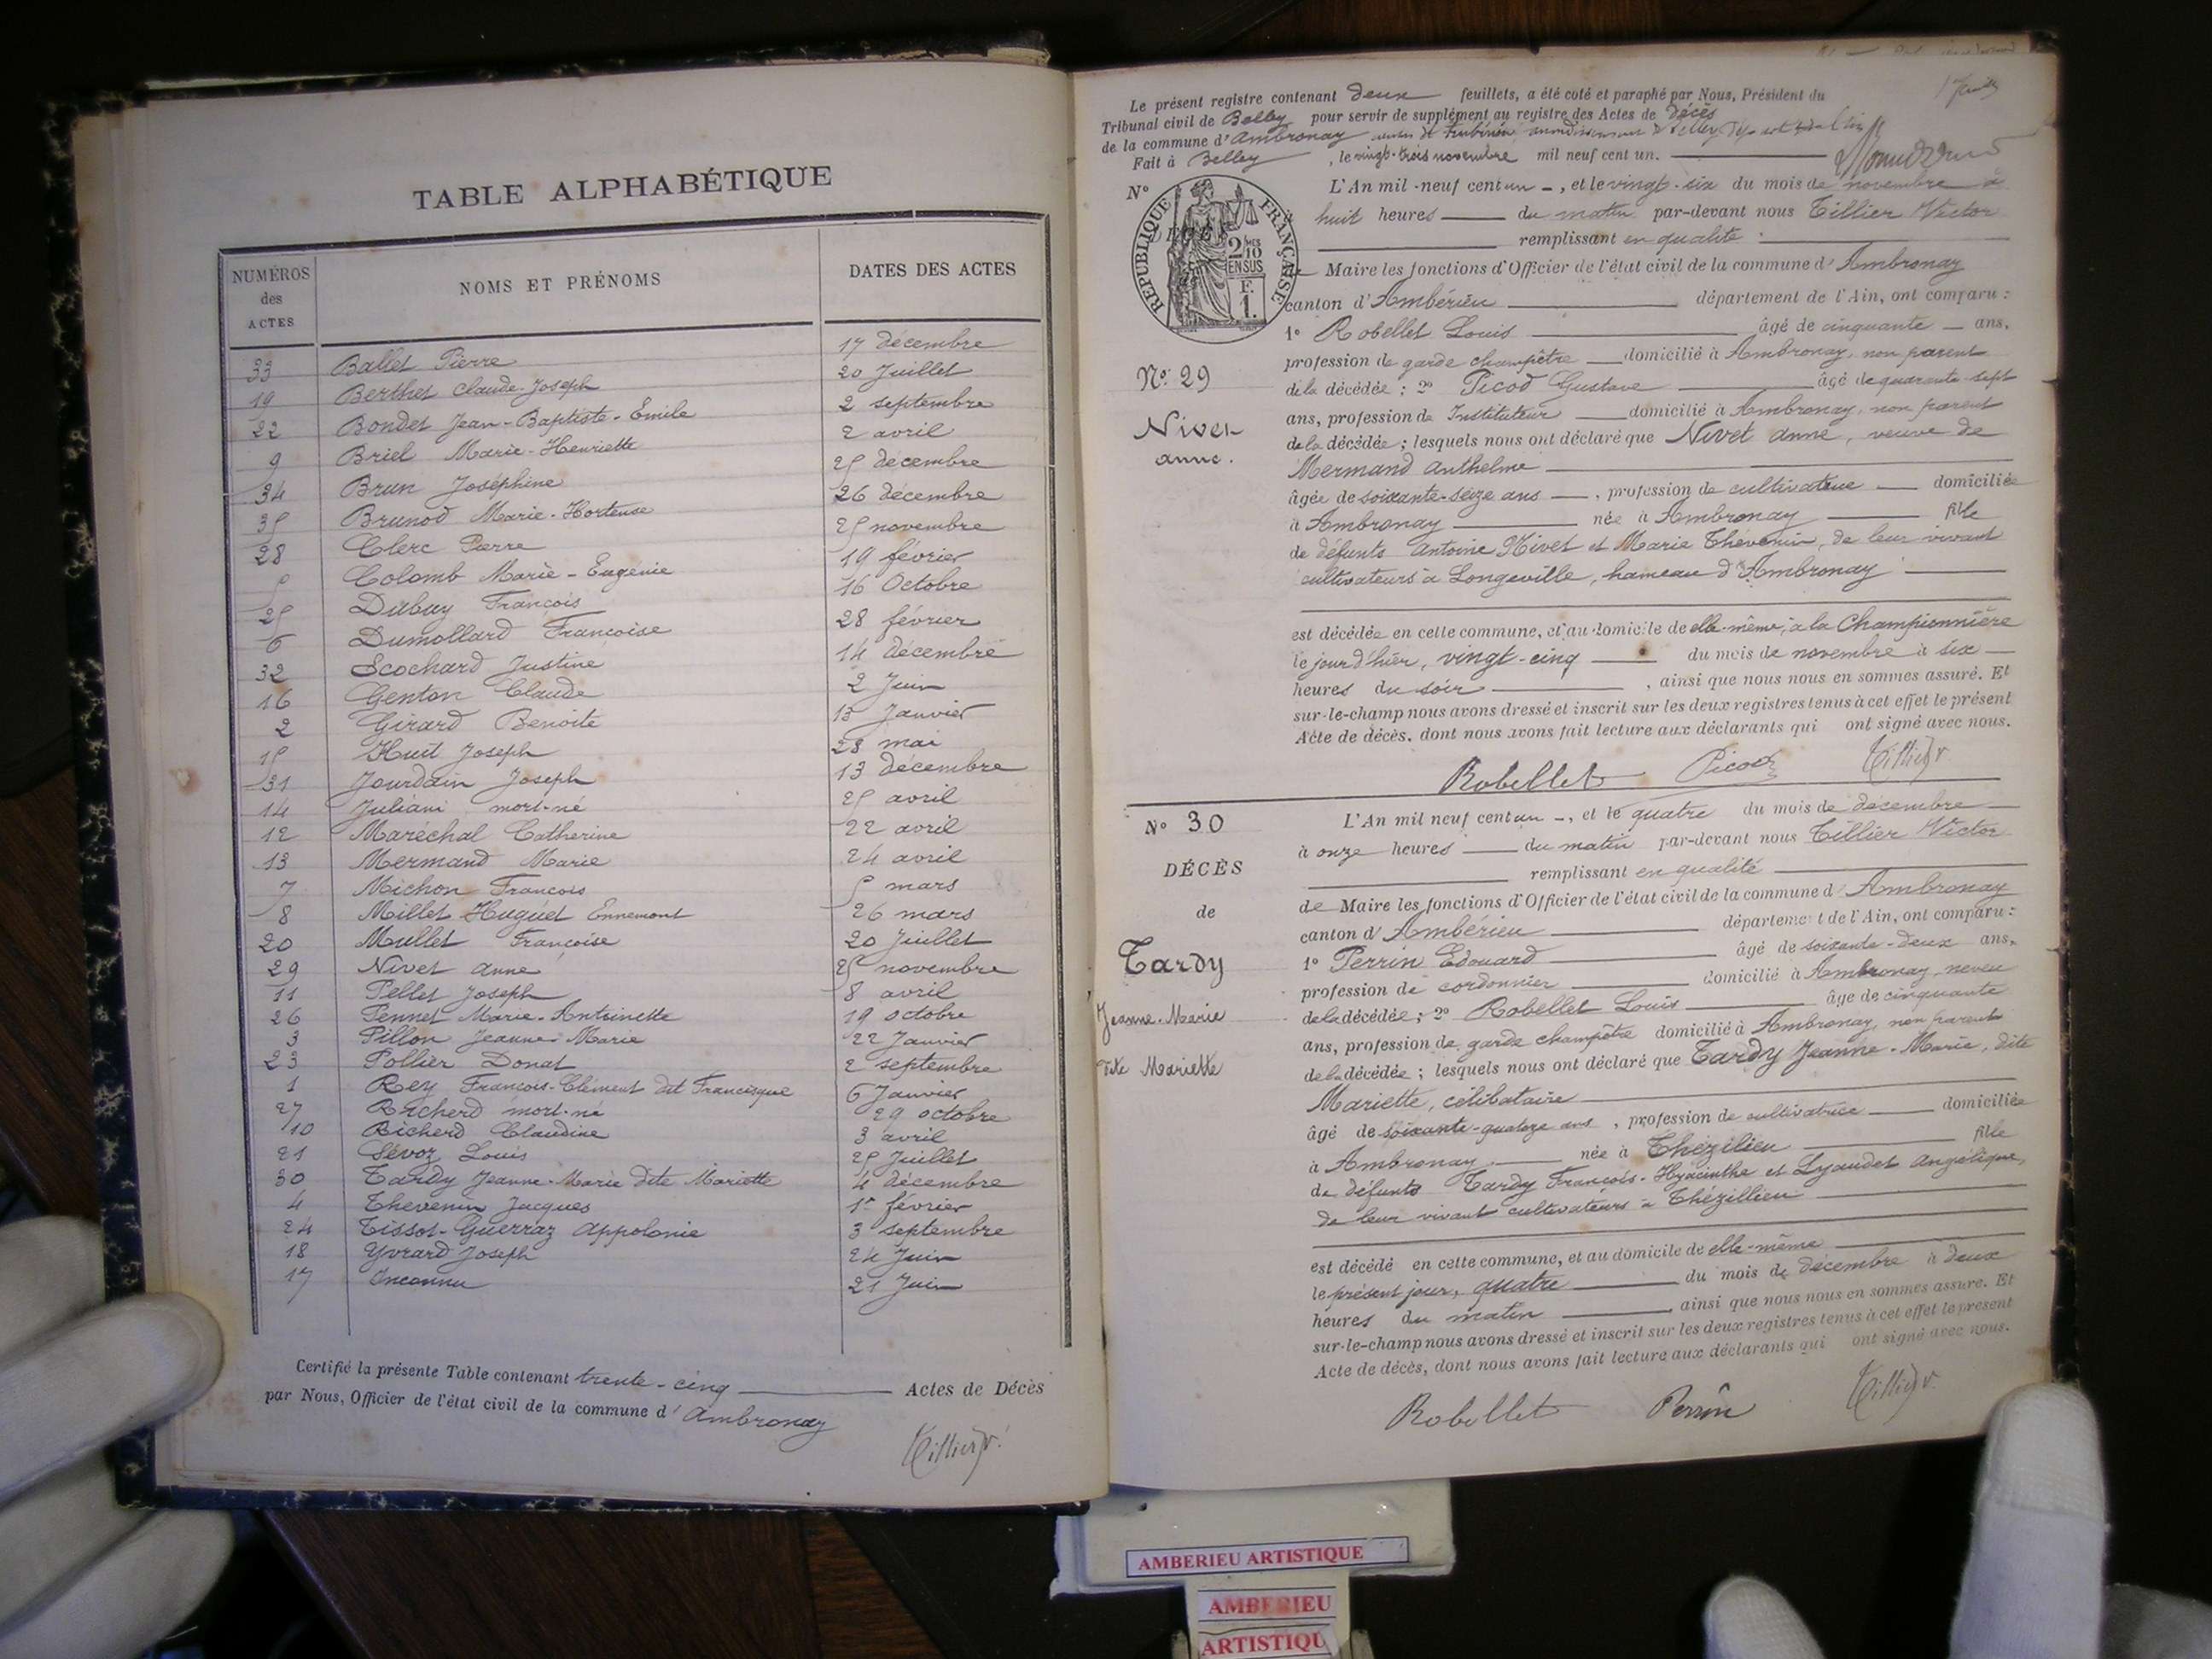 TABLE ALPHABÉTIQUE
NUMÉROS des ACTES
NOMS ET PRÉNOMS
DATES DES ACTES
33 Ballet Pierre 17 décembre
19 Berthet Claude-Joseph 20 Juillet
22 Bondet Jean-Baptiste-Emile 2 septembre
9 Briel Marie-Henriette 2 avril
34 Brun Joséphine 25 décembre
35 Brunod Marie-Hortense 26 décembre
28 Clerc Pierre 25 novembre
5 Colomb Marie-Eugénie 19 février
25 Dubuy François 16 Octobre
6 Dumollard Françoise 28 février
32 Escochard Justine 14 décembre
16 Genton Claude 2 Juin
2 Girard Benoite 13 Janvier
15 Huit Joseph 28 mai
31 Jourdain Joseph 13 décembre
14 Juliani mort-né 25 avril
12 Maréchal Catherine 22 avril
13 Mermand Marie 24 avril
7 Michon François 5 mars
8 Millet Huguet Ennemont 26 mars
20 Mullet Françoise 20 Juillet
29 Nivet anne 25 novembre
11 Pellet Joseph 8 avril
26 Pennet Marie-Antoinette 19 octobre
3 Pillon Jeanne-Marie 22 Janvier
23 Pollier Donat 2 septembre
1 Rey François-Clément dit Francisque 6 Janvier
27 Richerd mort-né 29 octobre
10 Richerd Claudine 3 avril
21 Sévoz Louis 25 Juillet
30 Tardy Jeanne-Marie dite Mariette 4 décembre
4 Thevenin Jacques 1er février
24 Tissot-Guerraz Appolonie 3 septembre
18 Yvrard Joseph 24 Juin
17 Inconnu 21 Juin
Certifié la présente Table contenant trente-cinq Actes de Décès
par Nous, Officier de l'état civil de la commune d'Ambronay
Tillier V.
Le présent registre contenant deux feuillets, a été coté et paraphé par Nous, Président du
Tribunal civil de Belley pour servir de supplément au registre des Actes de décès
de la commune d'Ambronay
Fait à Belley, le vingt-trois novembre mil neuf cent un.
N°
RÉPUBLIQUE FRANÇAISE
2/10 EN SUS
F. 1.
L'An mil-neuf cent un, et le vingt-six du mois de novembre à
huit heures du matin par-devant nous Tillier Victor
remplissant en qualité
Maire les fonctions d'Officier de l'état civil de la commune d'Ambronay
canton d'Ambérieu département de l'Ain, ont comparu :
1° Robellet Louis âgé de cinquante ans,
profession de garde champêtre domicilié à Ambronay, non parent
N° 29
de la décédée ; 2° Picod Gustave âgé de quarante-sept
ans, profession de Instituteur domicilié à Ambronay, non parent
Nivet
anne.
de la décédée ; lesquels nous ont déclaré que Nivet anne, veuve de
Mermand Anthelme
âgée de soixante-seize ans, profession de cultivatrice domiciliée
à Ambronay née à Ambronay fille
de défunts Antoine Nivet et Marie Thévenin, de leur vivant
cultivateurs à Longeville, hameau d'Ambronay
est décédée en cette commune, et au domicile de elle-même, à la Championnière
le jour d'hier, vingt-cinq du mois de novembre à six
heures du soir, ainsi que nous nous en sommes assuré. Et
sur-le-champ nous avons dressé et inscrit sur les deux registres tenus à cet effet le présent
Acte de décès, dont nous avons fait lecture aux déclarants qui ont signé avec nous.
Robellet Picod Tillier V
N° 30
L'An mil neuf cent un, et le quatre du mois de décembre
à onze heures du matin par-devant nous Tillier Victor
DÉCÈS
remplissant en qualité
de Maire les fonctions d'Officier de l'état civil de la commune d'Ambronay
de
canton d'Ambérieu département de l'Ain, ont comparu :
Tardy
1° Perrin Edouard âgé de soixante-deux ans,
profession de cordonnier domicilié à Ambronay, neveu
Jeanne-Marie
de la décédée ; 2° Robellet Louis âgé de cinquante
ans, profession de garde champêtre domicilié à Ambronay, non parent
dite Mariette
de la décédée ; lesquels nous ont déclaré que Tardy Jeanne-Marie, dite
Mariette, célibataire
âgé de soixante-quatorze ans, profession de cultivatrice domiciliée
à Ambronay née à Thézilieu fille
de défunts Tardy François-Hyacinthe et Lyaudet Angélique,
de leur vivant cultivateurs à Thézillieu
est décédé en cette commune, et au domicile de elle-même
le présent jour, quatre du mois de décembre à deux
heures du matin, ainsi que nous nous en sommes assuré. Et
sur-le-champ nous avons dressé et inscrit sur les deux registres tenus à cet effet le présent
Acte de décès, dont nous avons fait lecture aux déclarants qui ont signé avec nous.
Robellet Perrin Tillier V.
AMBERIEU ARTISTIQUE
AMBERIEU
ARTISTIQU